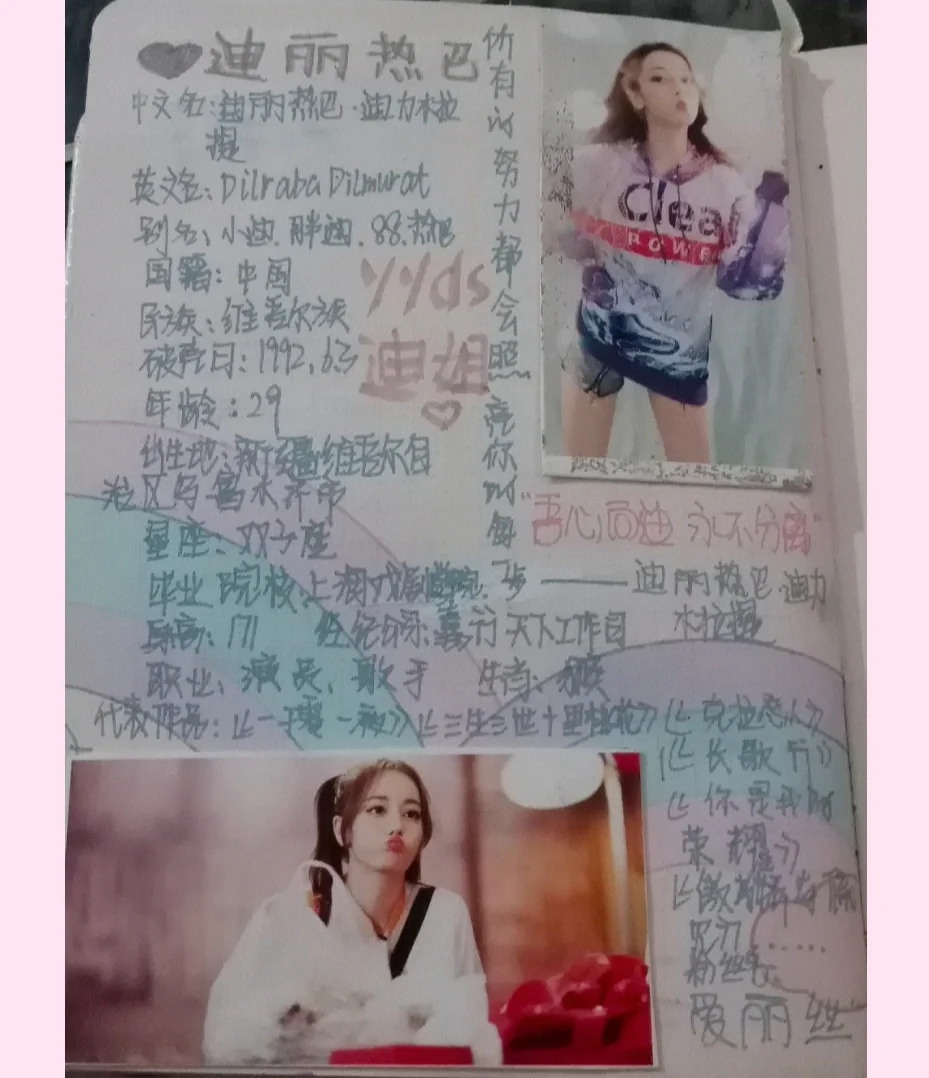 迪丽热巴
中文名:迪丽热巴·迪力木拉
提
英文名:Dilraba Dilmurat
别名:小迪.胖迪.88.热巴
国籍:中国
民族:维吾尔族
破壳日:1992.6.3
年龄:29
出生地:新疆维吾尔自
治区乌鲁木齐市
星座:双子座
毕业院校.上海戏剧学院
身高:171 经纪公司:嘉行天下工作日
职业:演员、歌手 生肖:猴
代表作品:《一千零一夜》《三生三世十里桃花》《克拉恋人》
《长歌行》
《你是我的
荣耀》
yyds
迪姐
你有的努力都会照亮你的每一步
——迪丽热巴·迪力
木拉提
Clear
POWE
"吾心向迪 永不分离"
粉丝名:
爱丽丝